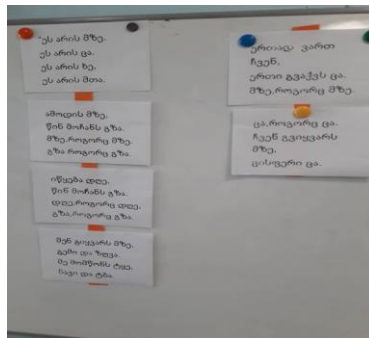 ეს არის მზე.
ეს არის ცა.
ეს არის ხე.
ეს არის მთა.
ამოდის მზე.
წინ მოჩანს გზა.
მზე, როგორც მზე.
გზა როგორც გზა.
იწყება დღე.
წინ მოჩანს გზა.
დღე, როგორც დღე.
გზა, როგორც გზა.
შენ გიყვარს მზე,
გემი და ზღვა.
მე მომწონს ტყე,
ნავი და ტბა.
ერთად ვართ
ჩვენ,
ერთი გვაქვს ცა.
მზე, როგორც მზე.
ცა, როგორც ცა.
ჩვენ გვიყვარს
მზე,
ცისფერი ცა.